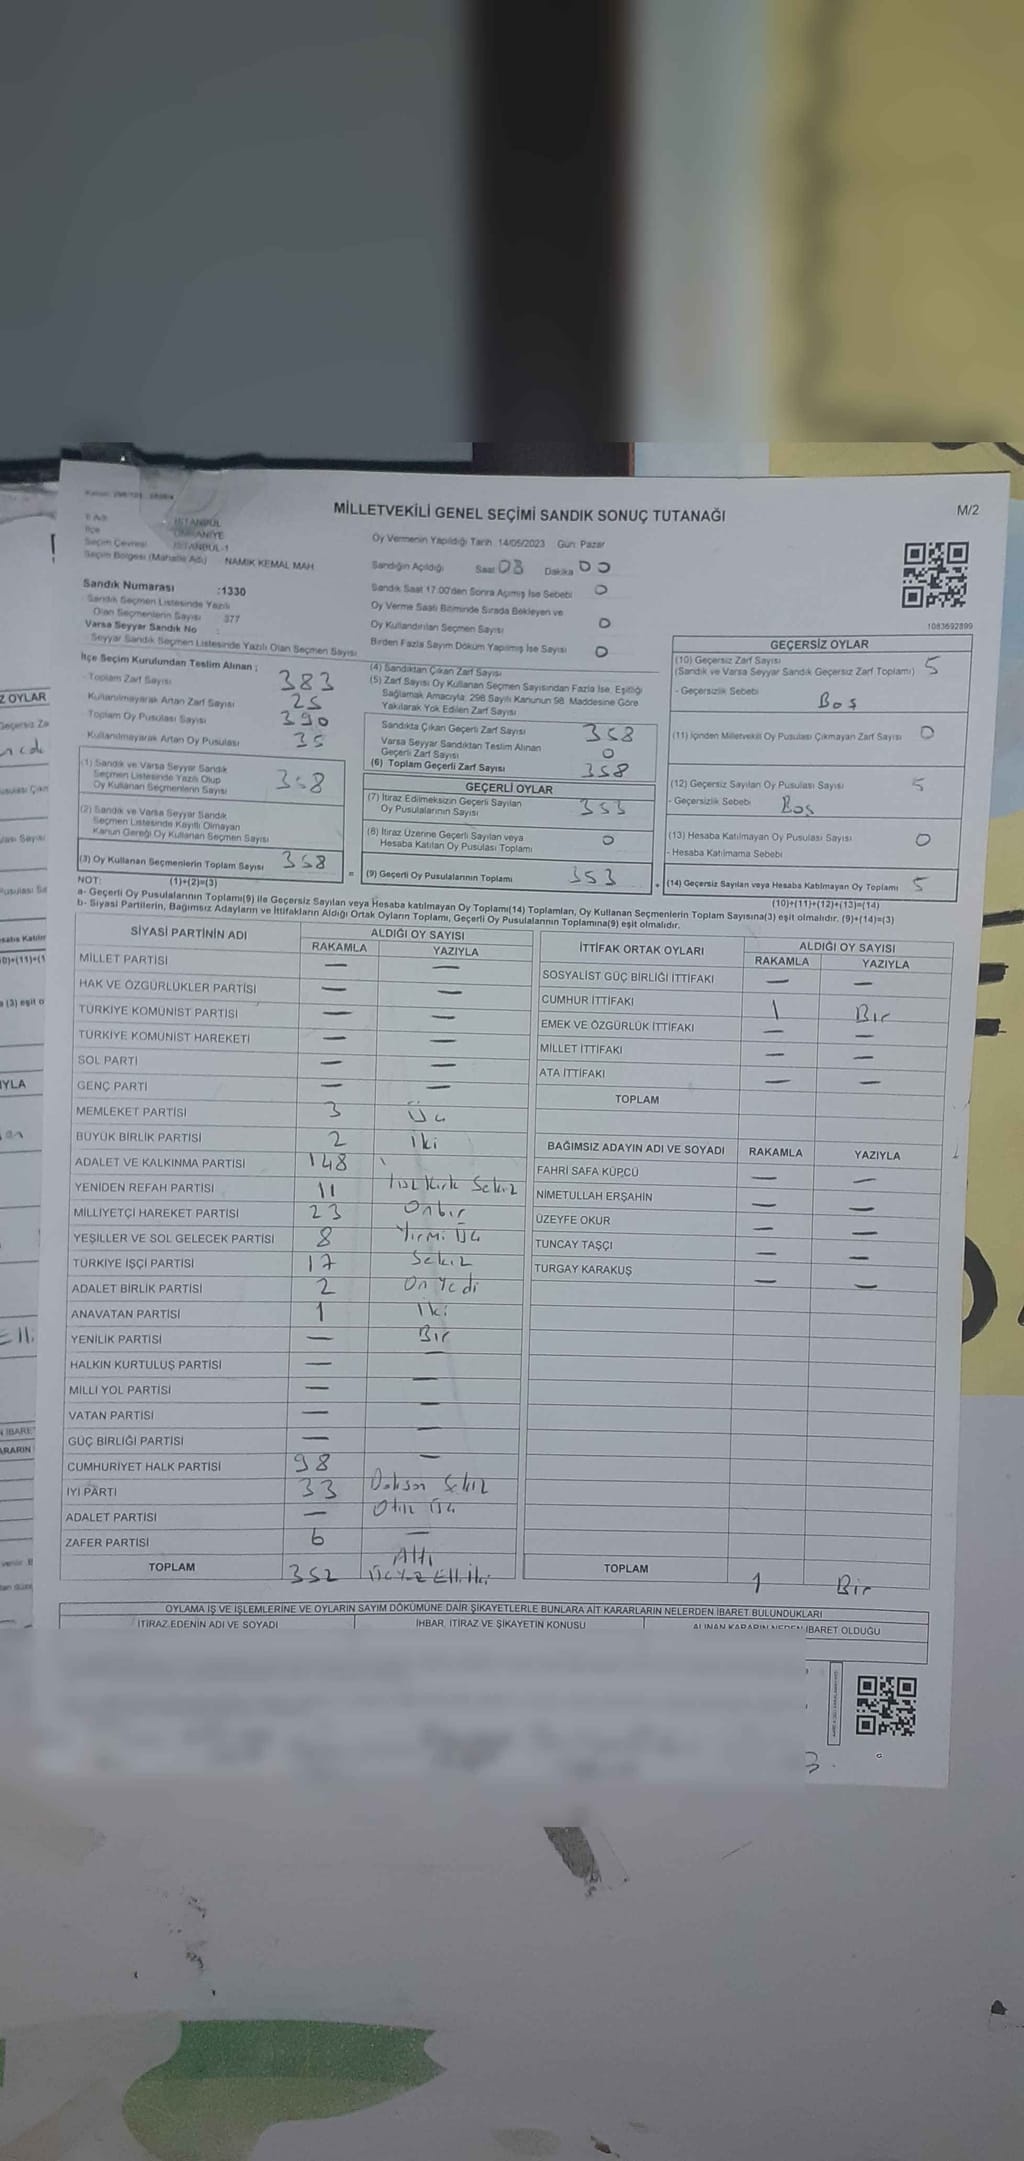 MİLLETVEKİLİ GENEL SEÇİMİ SANDIK SONUÇ TUTANAĞI
M/2
İl Adı İSTANBUL
İlçe ÜMRANİYE
Seçim Çevresi İSTANBUL-1
Seçim Bölgesi (Mahalle Adı) NAMIK KEMAL MAH.
Sandık Numarası :1330
Sandık Seçmen Listesinde Yazılı
Olan Seçmenlerin Sayısı 377
Varsa Seyyar Sandık No :
Seyyar Sandık Seçmen Listesinde Yazılı Olan Seçmen Sayısı
Oy Vermenin Yapıldığı Tarih 14/05/2023 Gün: Pazar
Sandığın Açıldığı Saat 08 Dakika 00
Sandık Saat 17.00'den Sonra Açılmış İse Sebebi 0
Oy Verme Saati Bitiminde Sırada Bekleyen ve
Oy Kullandırılan Seçmen Sayısı 0
Birden Fazla Sayım Döküm Yapılmış İse Sayısı 0
1083692899
İlçe Seçim Kurulundan Teslim Alınan ;
- Toplam Zarf Sayısı 383
Kullanılmayarak Artan Zarf Sayısı 25
Toplam Oy Pusulası Sayısı 390
Kullanılmayarak Artan Oy Pusulası 35
(1) Sandık ve Varsa Seyyar Sandık
Seçmen Listesinde Yazılı Olup
Oy Kullanan Seçmenlerin Sayısı 358
(2) Sandık ve Varsa Seyyar Sandık
Seçmen Listesinde Kayıtlı Olmayan
Kanun Gereği Oy Kullanan Seçmen Sayısı
(3) Oy Kullanan Seçmenlerin Toplam Sayısı 358
(4) Sandıktan Çıkan Zarf Sayısı
(5) Zarf Sayısı Oy Kullanan Seçmen Sayısından Fazla İse, Eşitliği
Sağlamak Amacıyla, 298 Sayılı Kanunun 98. Maddesine Göre
Yakılarak Yok Edilen Zarf Sayısı
Sandıkta Çıkan Geçerli Zarf Sayısı 358
Varsa Seyyar Sandıktan Teslim Alınan
Geçerli Zarf Sayısı 0
(6) Toplam Geçerli Zarf Sayısı 358
GEÇERLİ OYLAR
(7) İtiraz Edilmeksizin Geçerli Sayılan
Oy Pusulalarının Sayısı 353
(8) İtiraz Üzerine Geçerli Sayılan veya
Hesaba Katılan Oy Pusulası Toplamı 0
= (9) Geçerli Oy Pusulalarının Toplamı 353 +
GEÇERSİZ OYLAR
(10) Geçersiz Zarf Sayısı
(Sandık ve Varsa Seyyar Sandık Geçersiz Zarf Toplamı) 5
- Geçersizlik Sebebi
Boş
(11) İçinden Milletvekili Oy Pusulası Çıkmayan Zarf Sayısı 0
(12) Geçersiz Sayılan Oy Pusulası Sayısı 5
- Geçersizlik Sebebi Boş
(13) Hesaba Katılmayan Oy Pusulası Sayısı 0
- Hesaba Katılmama Sebebi
(14) Geçersiz Sayılan veya Hesaba Katılmayan Oy Toplamı 5
NOT: (1)+(2)=(3) (10)+(11)+(12)+(13)=(14)
a- Geçerli Oy Pusulalarının Toplamı(9) ile Geçersiz Sayılan veya Hesaba katılmayan Oy Toplamı(14) Toplamları, Oy Kullanan Seçmenlerin Toplam Sayısına(3) eşit olmalıdır. (9)+(14)=(3)
b- Siyasi Partilerin, Bağımsız Adayların ve İttifakların Aldığı Ortak Oyların Toplamı, Geçerli Oy Pusulalarının Toplamına(9) eşit olmalıdır.
SİYASİ PARTİNİN ADI ALDIĞI OY SAYISI
RAKAMLA YAZIYLA
MİLLET PARTİSİ — —
HAK VE ÖZGÜRLÜKLER PARTİSİ — —
TÜRKİYE KOMÜNİST PARTİSİ — —
TÜRKİYE KOMÜNİST HAREKETİ — —
SOL PARTİ — —
GENÇ PARTİ — —
MEMLEKET PARTİSİ 3 Üç
BÜYÜK BİRLİK PARTİSİ 2 iki
ADALET VE KALKINMA PARTİSİ 148
YENİDEN REFAH PARTİSİ 11 Yüz Kırk Sekiz
MİLLİYETÇİ HAREKET PARTİSİ 23 Onbir
YEŞİLLER VE SOL GELECEK PARTİSİ 8 Yirmi Üç
TÜRKİYE İŞÇİ PARTİSİ 17 Sekiz
ADALET BİRLİK PARTİSİ 2 On Yedi
ANAVATAN PARTİSİ 1 İki
YENİLİK PARTİSİ — Bir
HALKIN KURTULUŞ PARTİSİ — —
MİLLİ YOL PARTİSİ — —
VATAN PARTİSİ — —
GÜÇ BİRLİĞİ PARTİSİ — —
CUMHURİYET HALK PARTİSİ 98 —
İYİ PARTİ 33 Doksan Sekiz
ADALET PARTİSİ — Otuz Üç
ZAFER PARTİSİ 6 —
Altı
TOPLAM 352 Üç Yüz Elli İki
İTTİFAK ORTAK OYLARI ALDIĞI OY SAYISI
RAKAMLA YAZIYLA
SOSYALİST GÜÇ BİRLİĞİ İTTİFAKI — —
CUMHUR İTTİFAKI 1 Bir
EMEK VE ÖZGÜRLÜK İTTİFAKI — —
MİLLET İTTİFAKI — —
ATA İTTİFAKI — —
TOPLAM
BAĞIMSIZ ADAYIN ADI VE SOYADI RAKAMLA YAZIYLA
FAHRİ SAFA KÜPCÜ — —
NİMETULLAH ERŞAHİN — —
ÜZEYFE OKUR — —
TUNCAY TAŞÇI — —
TURGAY KARAKUŞ — —
TOPLAM 1 Bir
OYLAMA İŞ VE İŞLEMLERİNE VE OYLARIN SAYIM DÖKÜMÜNE DAİR ŞİKAYETLERLE BUNLARA AİT KARARLARIN NELERDEN İBARET BULUNDUKLARI
İTİRAZ EDENİN ADI VE SOYADI İHBAR, İTİRAZ VE ŞİKAYETİN KONUSU ALINAN KARARIN NEDEN İBARET OLDUĞU